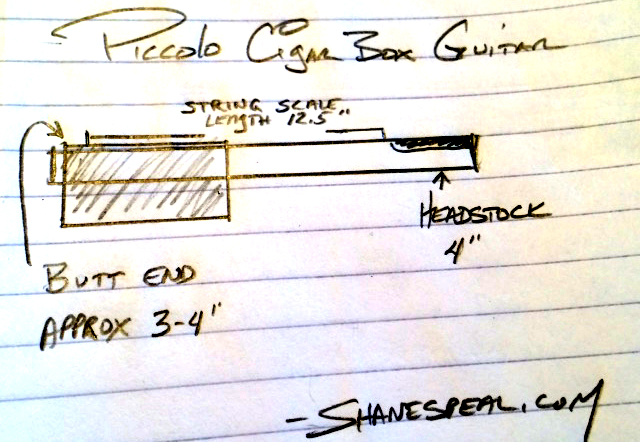 Piccolo Cigar Box Guitar
STRING SCALE
LENGTH 12.5"
HEADSTOCK
4"
BUTT END
APPROX 3-4"
- SHANESPEAL.COM